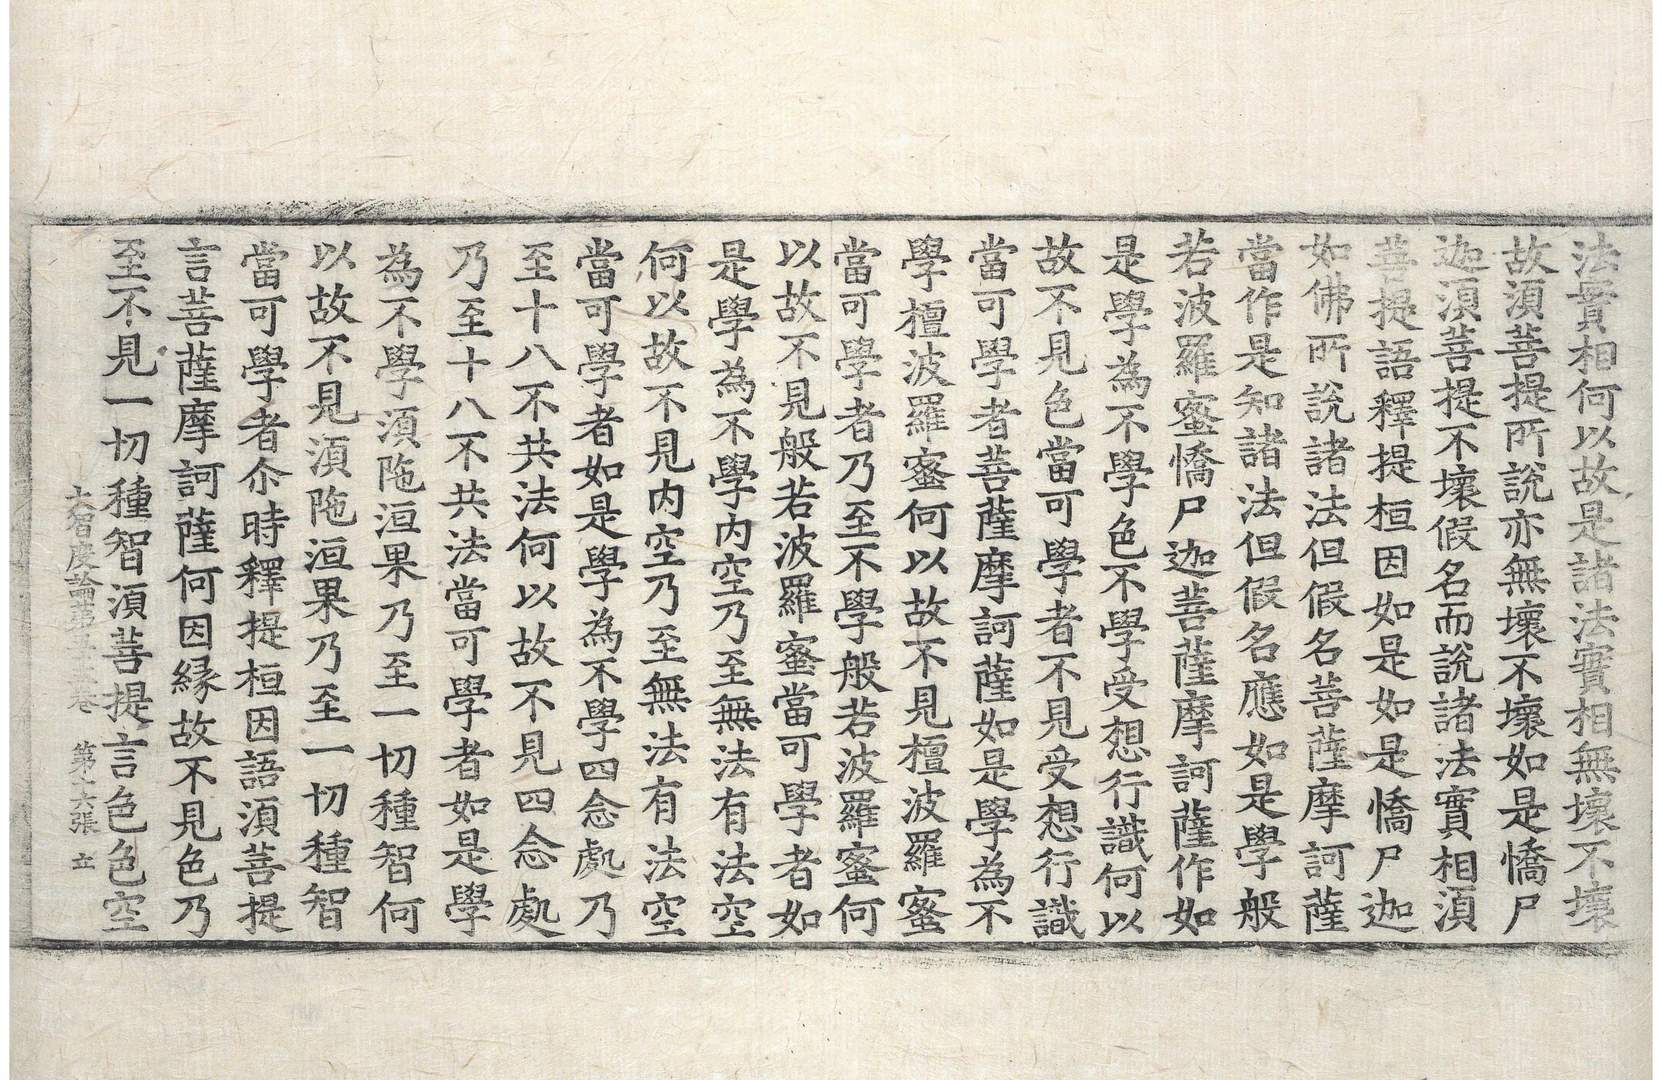 法實相何以故是諸法實相無壞不壞
故湏菩提所說亦無壞不壞如是憍尸
迦湏菩提不壞假名而說諸法實相湏
菩提語釋提桓因如是如是憍尸迦
如佛所說諸法但假名菩薩摩訶薩
當作是知諸法但假名應如是學般
若波羅蜜憍尸迦菩薩摩訶薩作如
是學為不學色不學受想行識何以
故不見色當可學者不見受想行識
當可學者菩薩摩訶薩如是學為不
學檀波羅蜜何以故不見檀波羅蜜
當可學者乃至不學般若波羅蜜何
以故不見般若波羅蜜當可學者如
是學為不學内空乃至無法有法空
何以故不見内空乃至無法有法空
當可學者如是學為不學四念處乃
至十八不共法何以故不見四念處
乃至十八不共法當可學者如是學
為不學湏陁洹果乃至一切種智何
以故不見湏陁洹果乃至一切種智
當可學者尒時釋提桓因語湏菩提
言菩薩摩訶薩何因縁故不見色乃
至不見一切種智湏菩提言色色空
大智度論第五十五卷 第六張 立